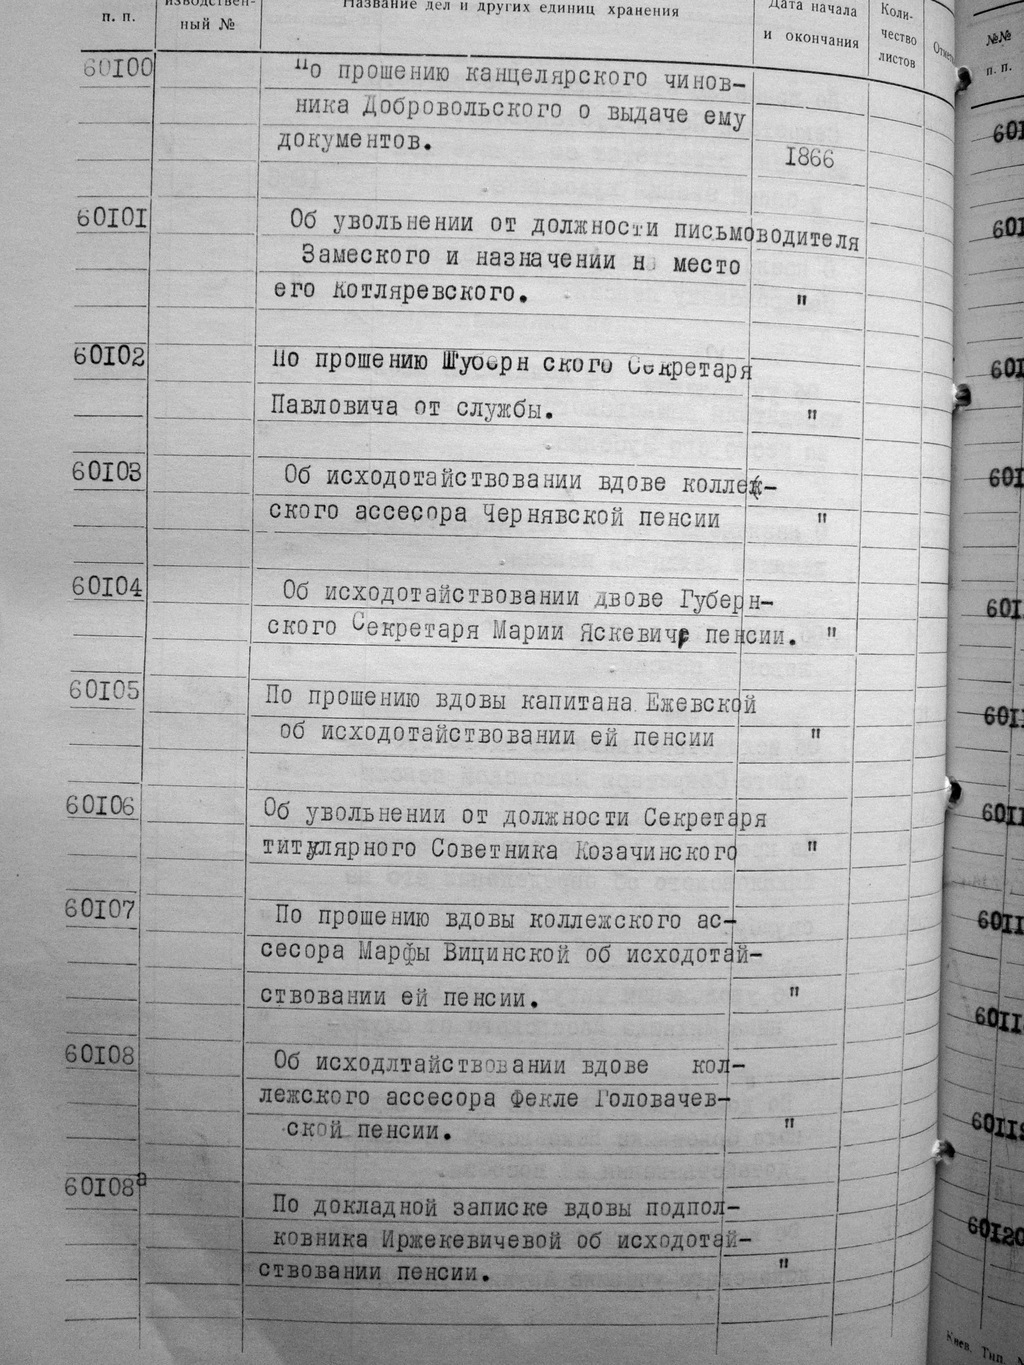 п. п.
ный №
Название дел и других единиц хранения
Дата начала
и окончания
Коли-
чество
листов
№№
п. п.
60100
По прошению канцелярского чинов-
ника Добровольского о выдаче ему
документов.
1866
60101
Об увольнении от должности письмоводителя
Замеского и назначении на место
его Котляревского.
"
60102
По прошению Шуберн ского Секретаря
Павловича от службы.
"
60103
Об исходотайствовании вдове коллеж-
ского ассесора Чернявской пенсии
"
60104
Об исходотайствовании двове Губерн-
ского Секретаря Марии Яскевич пенсии. "
60105
По прошению вдовы капитана Ежевской
об исходотайствовании ей пенсии
"
60106
Об увольнении от должности Секретаря
титулярного Советника Козачинского
"
60107
По прошению вдовы коллежского ас-
сесора Марфы Вицинской об исходотай-
ствовании ей пенсии.
"
60108
Об исходлтайствовании вдове кол-
лежского ассесора Фекле Головачев-
ской пенсии.
"
60108а
По докладной записке вдовы подпол-
ковника Иржекевичевой об исходотай-
ствовании пенсии.
"
60120
Киев. Тип.